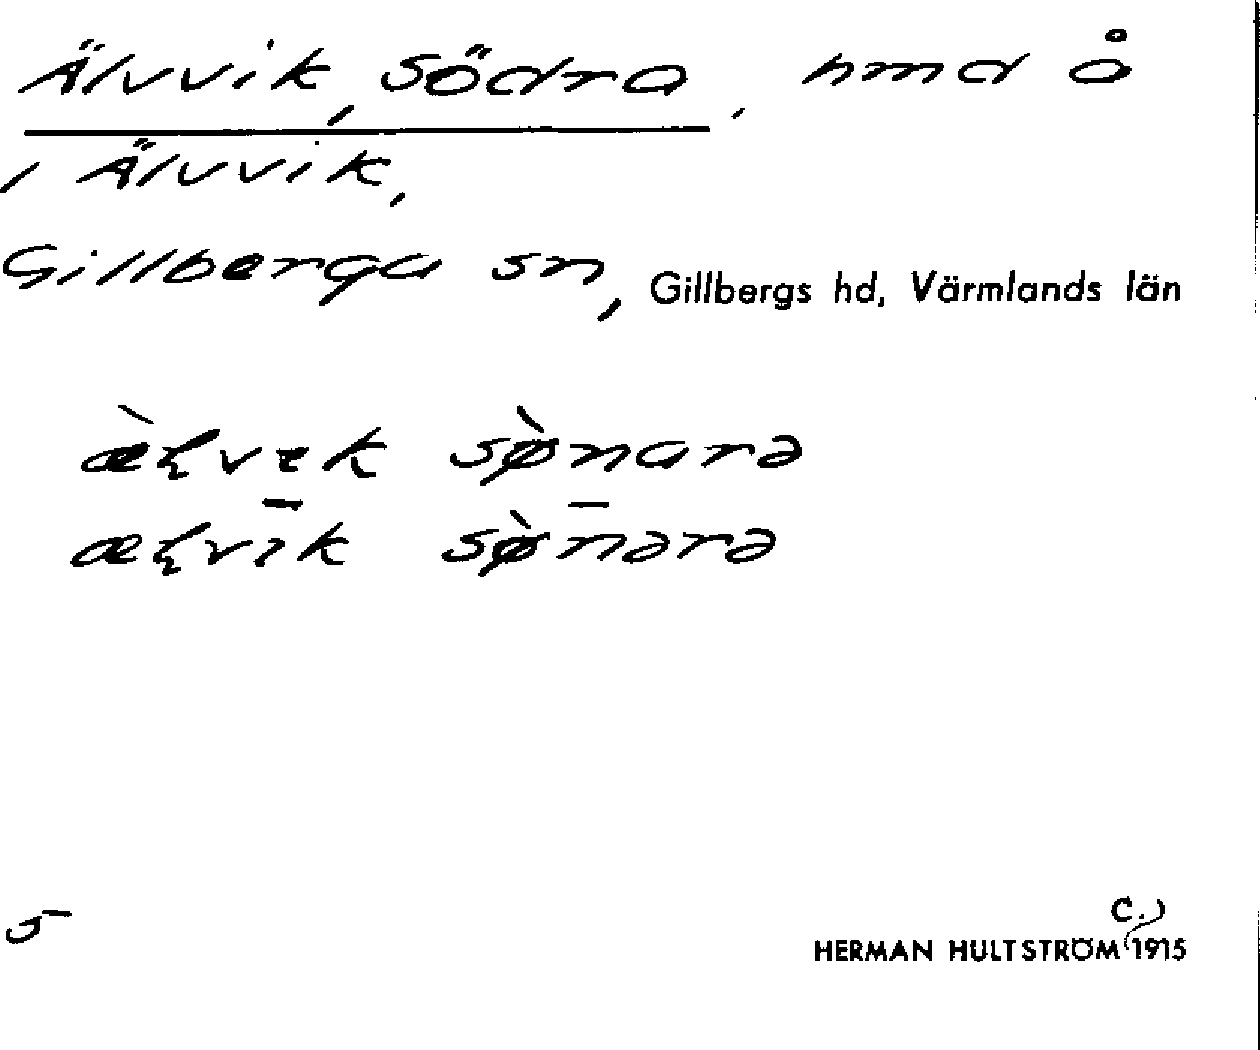 Älvvik, Södra, hmd å
i Älvvik,
Gillberga sn, Gillbergs hd, Värmlands län
sø̀nara
sø̀nərə
5
c.)
HERMAN HULTSTRÖM 1915